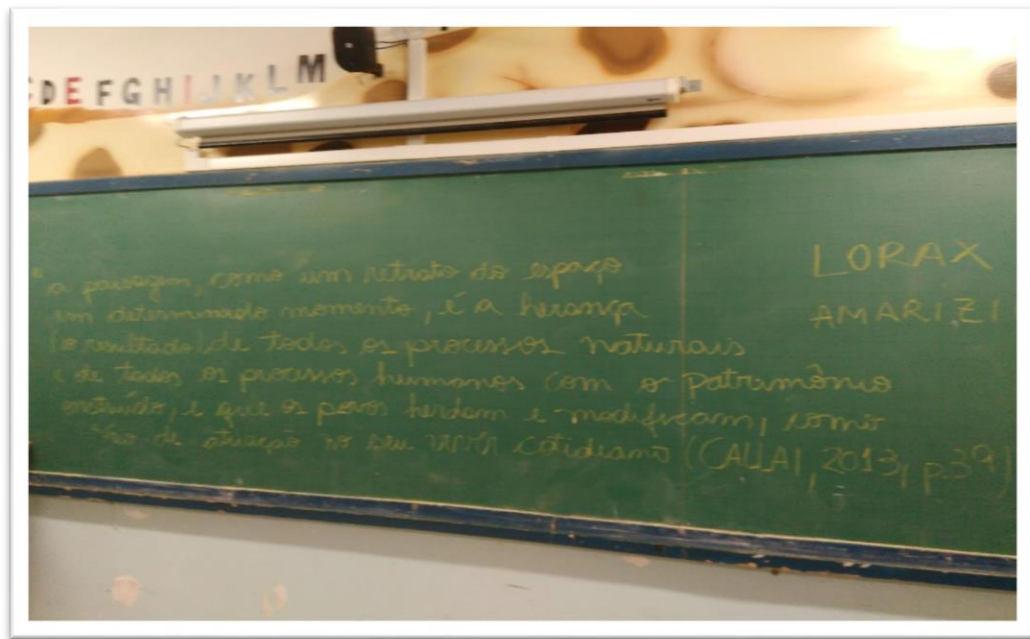 D E F G H I J K L M
" a paisagem, como um retrato do espaço
um determinado momento, é a herança
(o resultado) de todos os processos naturais
e de todos os processos humanos com o patrimônio
onstruído, e que os povos herdam e modificam, como
de atuação no seu viver cotidiano (CALLAI, 2013, p.39)
LORAX
AMARIZI